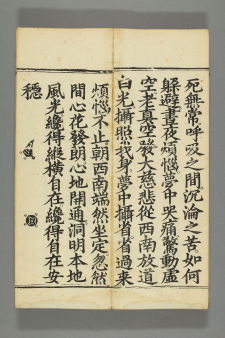 死無常呼吸之間沉淪之苦如何
躲避晝夜煩惱夢中哭痛驚動虛
空老真空發大慈悲從西南放道
白光攝照我身夢中攝省省過來
煩惱不止朝西南端然坐定忽然
間心花發朗心地開通洞明本地
風光纔得縱橫自在纔得自在安
穩